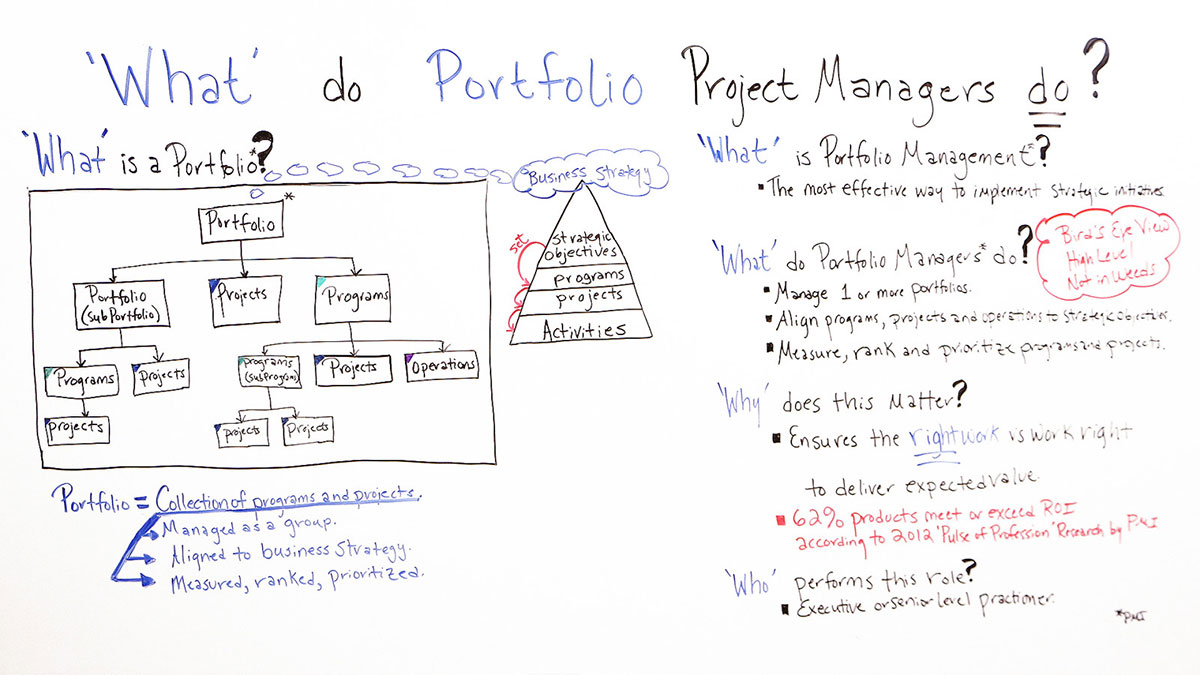 'What' do Portfolio Project Managers do?
'What' is a Portfolio*?
Portfolio *
Portfolio
(subPortfolio)
Projects
Programs
Programs
Projects
programs
(subprogram)
Projects
Operations
projects
projects
Projects
Portfolio = Collection of programs and projects.
Managed as a group.
Aligned to business strategy.
Measured, ranked, prioritized.
Business Strategy
set
strategic
objectives
programs
projects
Activities
'What' is Portfolio Management*?
▪ The most effective way to implement strategic initiatives
'What' do Portfolio Managers* do?
Bird's Eye View
High Level
Not in Weeds
▪ Manage 1 or more portfolios.
▪ Align programs, projects and operations to strategic objectives.
▪ Measure, rank and prioritize programs and projects.
'Why' does this Matter?
▪ Ensures the right work vs work right
to deliver expected value.
▪ 62% products meet or exceed ROI
according to 2012 'Pulse of Profession' Research by PMI
'Who' performs this role?
▪ Executive or senior level practioner.
*PMI